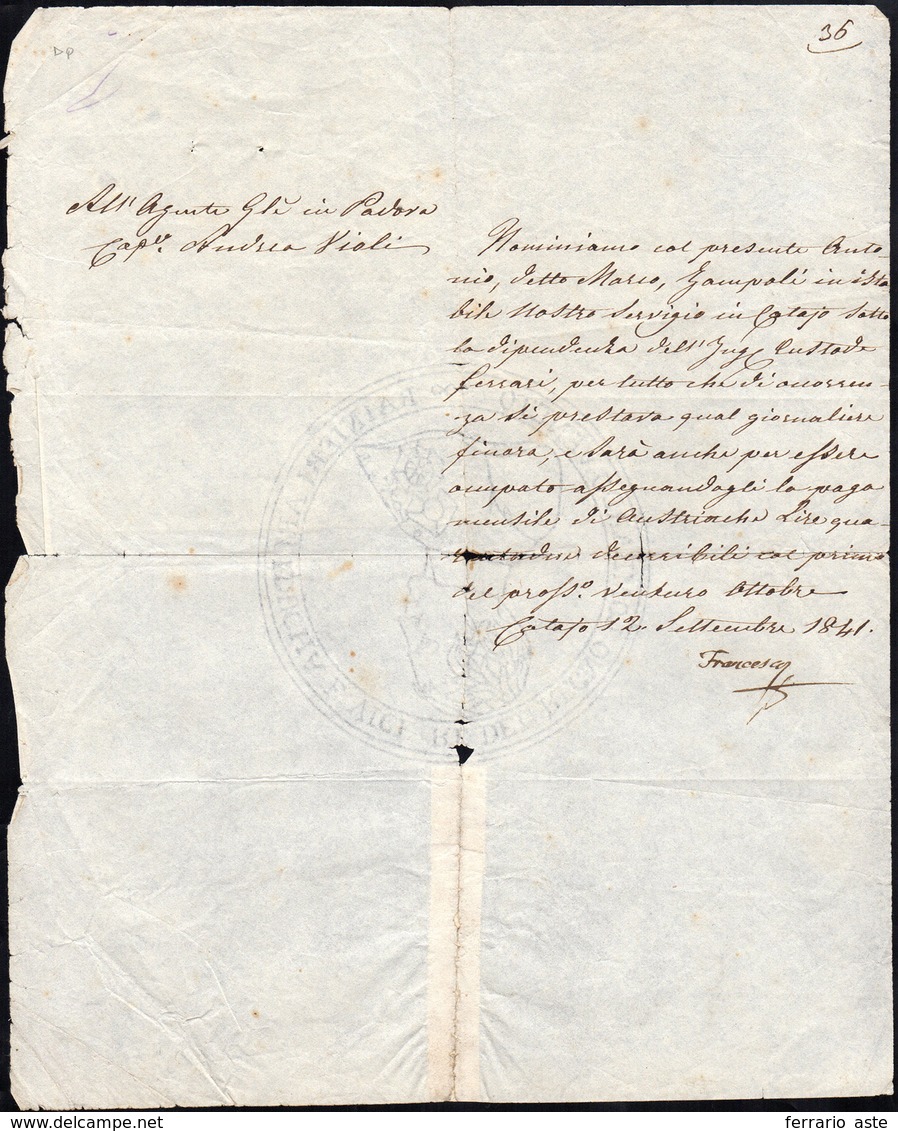 36
DP
All' Agente Gle in Padova
Cav.r Andrea Violi
Nominiamo col presente Anto-
nio, detto Marco, Zampoli in ista
bile Nostro Servigio in Catajo sotto
la dipendenza dell' Ing. Custode
Ferrari, per tutto che di occorren-
za si prestava qual giornaliere
finora, e sarà anche per essere
occupato assegnandogli la paga
mensile di Austriache Lire qua-
decorribili col primo
del pross.o venturo Ottobre
Catajo 12. Settembre 1841.
Francesco
ferrario aste